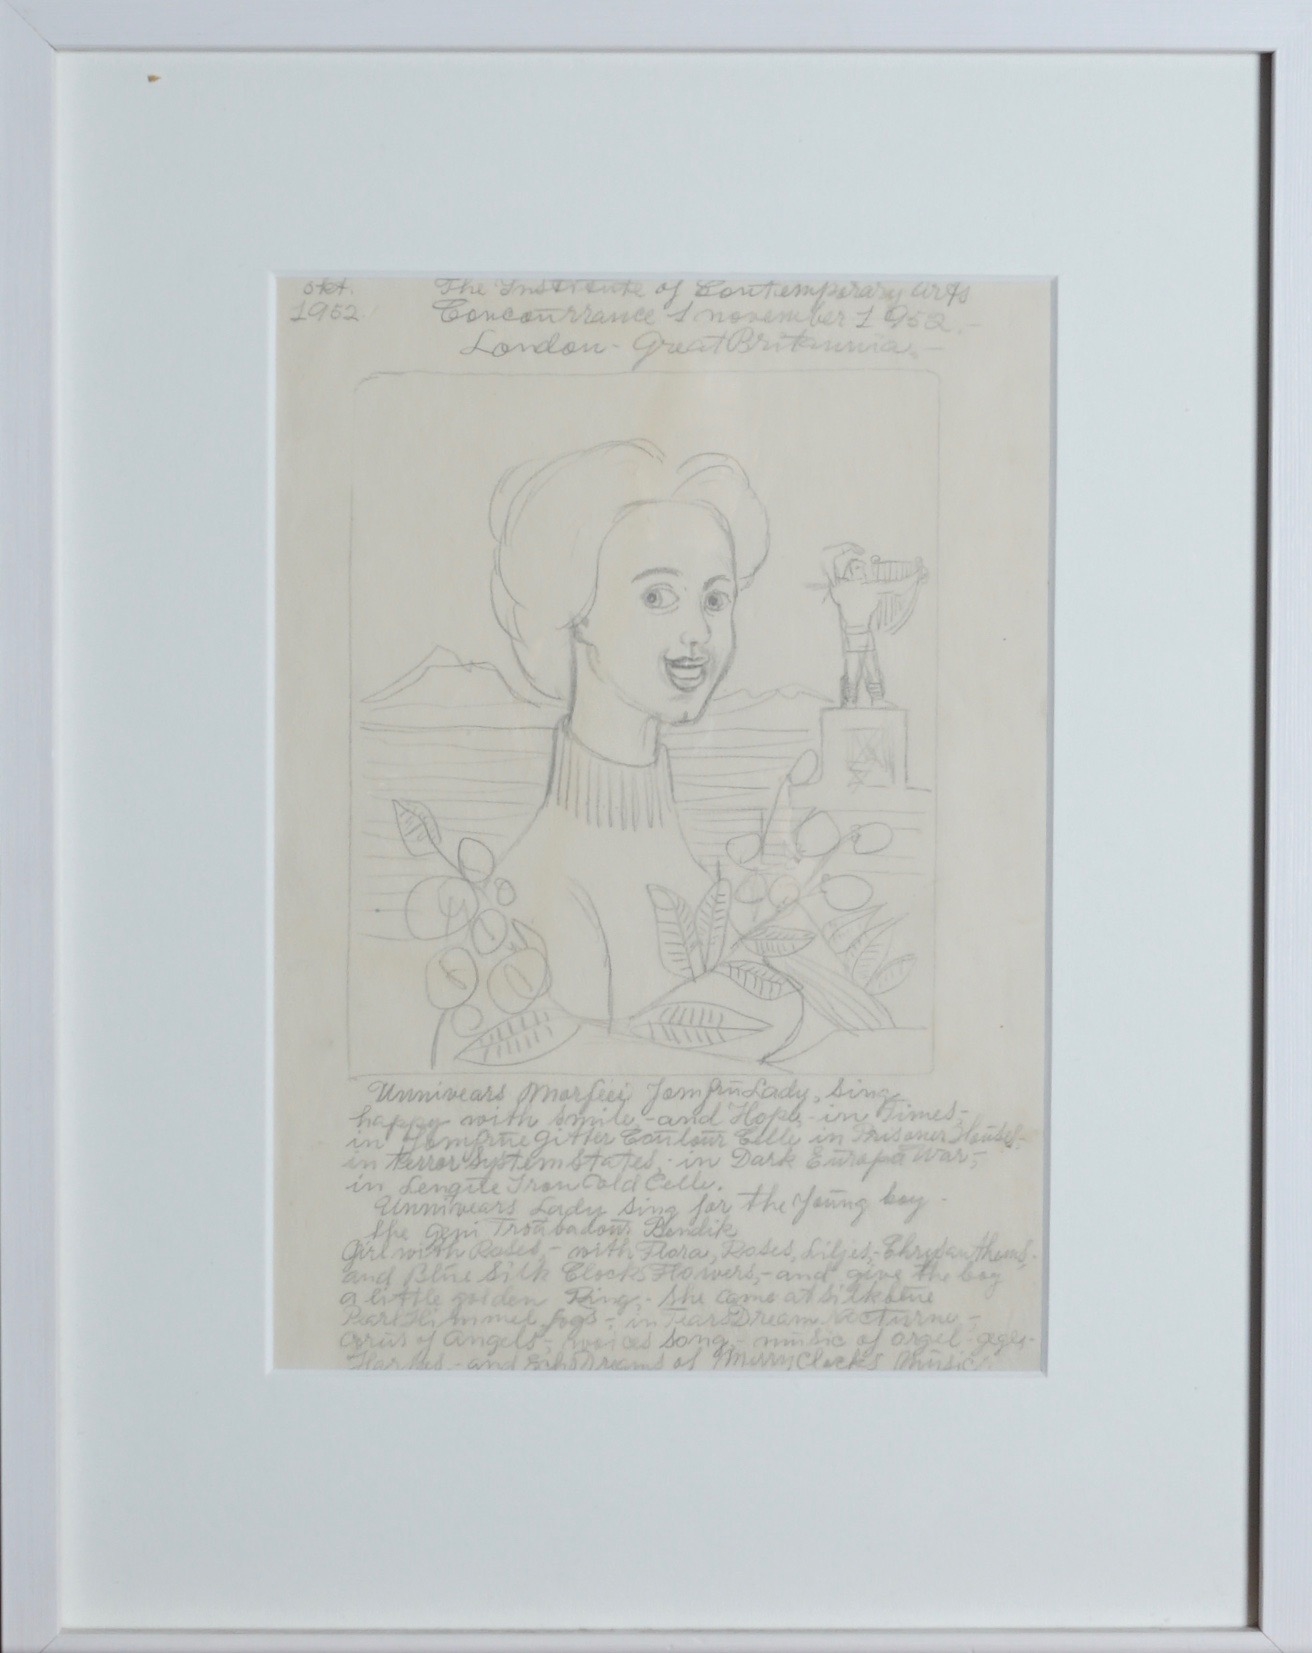 okt.
1952.
The Institute of Contemporary Arts
Concourrance 1 november 1952.-
London - Great Britannia.-
Unnivears Morfeei Jomfru Lady, sing
happy with smile,-and Hope,- in Times,-
in Jomfrue Gitter Coulour Celle in Prisoner Houses-
in terror System States,- in Dark Europa War,-
in Lengite Iron Cold Celle.
Unnivears Lady sing for the Young boy -
the Geni Troubadour Bendik
Girl with Roses,- with Flora, Roses, Liljes,- Chrysanthems-
and Blue Silk Clock Flowers,- and give the boy
a little golden Ring,- she came at silk
Pearl Himmel fogs-, in Tears Dream Nocturne,-
of Angels-, voices song,- music of orgel-
Harpes - and Dreams of Merry Clocks Music